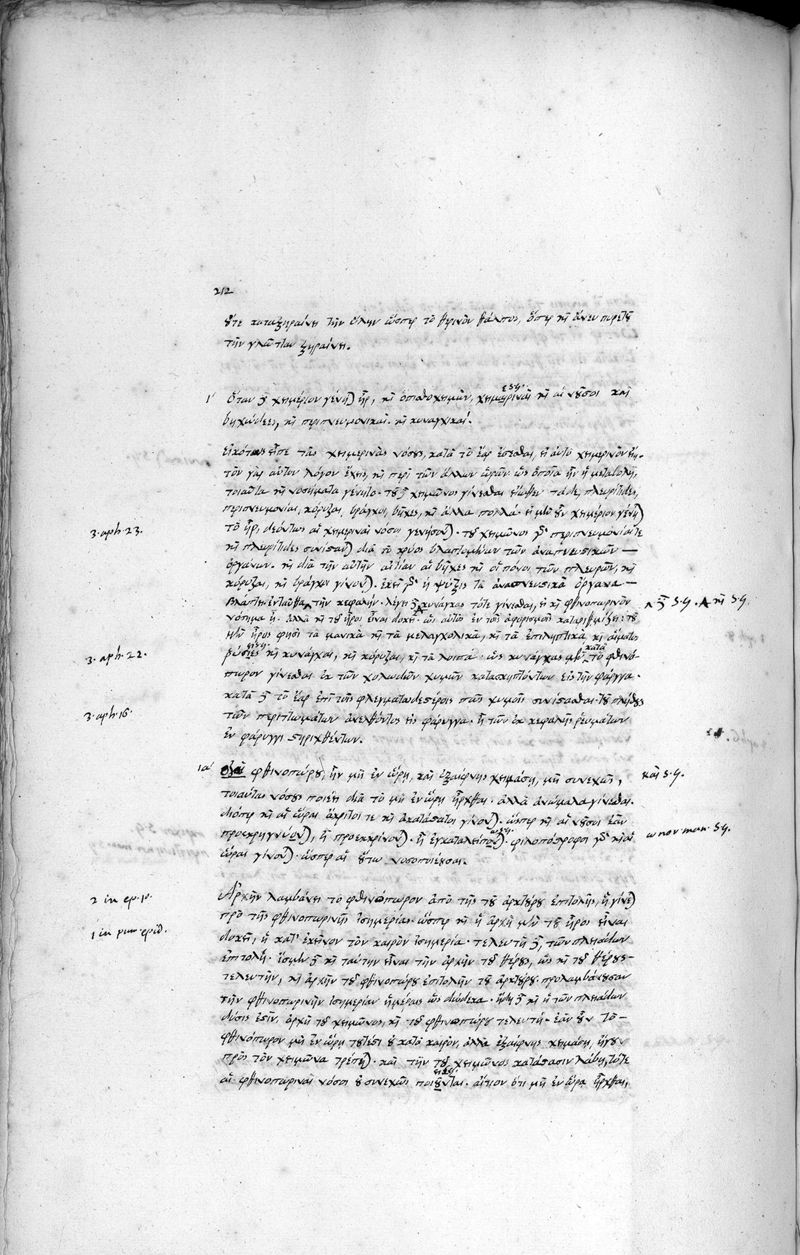 212
ὅτε καταξηραίνει τὴν ὕλην ὥσπερ τὸ θερινὸν θάλπος, ὅπερ καὶ ἄνευ πυρετοῦ
τὴν γλῶτταν ξηραίνει.
ι Ὅταν δὲ χειμέριον γένηται ἦρ, καὶ ὀπισθοχειμὼν, χειμεριναὶ καὶ αἱ νοῦσοι καὶ
βηχώδεες, καὶ περιπνευμονικαὶ καὶ κυναγχικαί.
Εἰκότως εἶπε τὰς χειμερινὰς νόσους κατὰ τὸ ἔαρ ἔσεσθαι, εἰ αὐτὸ χειμερινὸν
τὸν γὰρ αὐτὸν λόγον ἔχει, καὶ περὶ τῶν ἄλλων ὡρῶν ὡς ὁποία ἦν ἡ μεταβολὴ,
τοιαῦτα καὶ νοσήματα γένηται. τοῦ δὲ χειμῶνος γίνεσθαι εἴωθεν τάδε, πλευρίτιδες,
περιπνευμονίαι, κόρυζαι, βράγχοι, βῆχες, καὶ ἄλλα πολλά. εἰ μὲν οὖν χειμέριον γένηται
3. aph. 23. τὸ ἦρ, δεόντως αἱ χειμεριναὶ νόσοι γενήσονται. τοῦ χειμῶνος γὰρ περιπνευμονίαι τε
καὶ πλευρίτιδες συνίστανται διὰ τὸ κρύος βλαπτομένων τῶν ἀναπνευστικῶν
ὀργάνων. καὶ διὰ τὴν αὐτὴν αἰτίαν αἱ βῆχες καὶ οἱ πόνοι τῶν πλευρῶν, καὶ
κόρυζαι, καὶ βράγχοι γίνονται. ἐκεῖ γὰρ ἡ ψύξις τὰ ἀναπνευστικὰ ὄργανα
βλάπτει ἐνταῦθα τὴν κεφαλήν. λέγει δὲ κυνάγχας τότε γίνεσθαι, εἰ καὶ φθινοπωρινὸν
νόσημα ᾖ. ἀλλὰ καὶ τοῦ ἦρος εἶναι δοκεῖ. ὡς αὐτὸς ἐν τοῖς ἀφορισμοῖς καταριθμίζει. τοῦ
3. aph. 22. μὲν ἦρος φησὶ τὰ μανικὰ καὶ τὰ μελαγχολικὰ, καὶ τὰ ἐπιληπτικὰ, καὶ αἵματος
ῥύσιες καὶ κυνάγχαι, καὶ κόρυζαι, καὶ τὰ λοιπά. ὡς κυνάγχας μὲν κατὰ τὸ φθινό-
πωρον γίνεσθαι ἐκ τῶν χολωδῶν χυμῶν κατασκηπτόντων εἰς τὴν φάρυγγα.
3. aph. 16. κατὰ δὲ τὸ ἔαρ ἐπὶ τοῖς φλεγματωδεστέροις πως χυμοῖς συνίστασθαι. τοῦ πλήθους
τῶν περιττωμάτων ἀνελθόντος εἰς φάρυγγα. ἢ τῶν ἐκ κεφαλῆς ῥευμάτων
ἐν φάρυγγι στηριχθέντων.
ια φθινοπώρου, ἢν μὴ ἐν ὥρῃ, καὶ ἐξαίφνης χειμάσῃ, μὴ συνεχῶς,
τοιαύτας νόσους ποιέει διὰ τὸ μὴ ἐν ὥρῃ ἦρχθαι. ἀλλὰ ἀνώμαλα γίνεσθαι.
διόπερ καὶ αἱ ὧραι ἄκριτοί τε καὶ ἀκατάστατοι γίνονται. ὥσπερ καὶ αἱ νοῦσοι ἐὰν
προεκρηγνύωνται, ἢ προεκκρίνωνται, ἢ ἐγκαταλείπωνται. φιλυπόστροφοι γὰρ καὶ αἱ
ὧραι γίνονται. ὥσπερ αἱ οὕτω νοσοποιέεσαι.
2 in ep. 1. Ἀρχὴν λαμβάνει τὸ φθινόπωρον ἀπὸ τῆς τοῦ ἀρκτούρου ἐπιτολῆς, ἣ γίνεται
πρὸ τῆς φθινοπωρινῆς ἰσημερίας. ὥσπερ καὶ ἡ ἀρχὴ μὲν τοῦ ἦρος εἶναι
δοκεῖ, ἡ κατ' ἐκεῖνον τὸν καιρὸν ἰσημερία. τελευτὴ δὲ, τῶν πλειάδων
ἐπιτολή. ἴσμεν δὲ καὶ ταύτην εἶναι τὴν ἀρχὴν τοῦ θέρους, ὡς καὶ τοῦ θέρους
τελευτὴν, καὶ ἀρχὴν τοῦ φθινοπώρου ἐπιτολὴν τοῦ ἀρκτούρου προλαμβάνουσαν
τὴν φθινοπωρινὴν ἰσημερίαν ἡμέραις ὡς δώδεκα. ἤδη δὲ καὶ ἡ τῶν πλειάδων
δύσις ἐστὶν ἀρχὴ τοῦ χειμῶνος, καὶ τοῦ φθινοπώρου τελευτή. ἐὰν οὖν τὸ
φθινόπωρον μὴ ἐν ὥρῃ τουτέστι οὐ κατὰ καιρὸν, ἀλλὰ ἐξαίφνης χειμάσῃ, ἤγουν
πρὸς τὸν χειμῶνα τρέπηται. καὶ τὴν τοῦ χειμῶνος κατάστασιν λάβῃ, τότε
αἱ φθινοπωριναὶ νόσοι οὐ συνεχῶς ποιοῦνται. αἴτιον ὅτι μὴ ἐν ὥρᾳ ἦρχθαι,